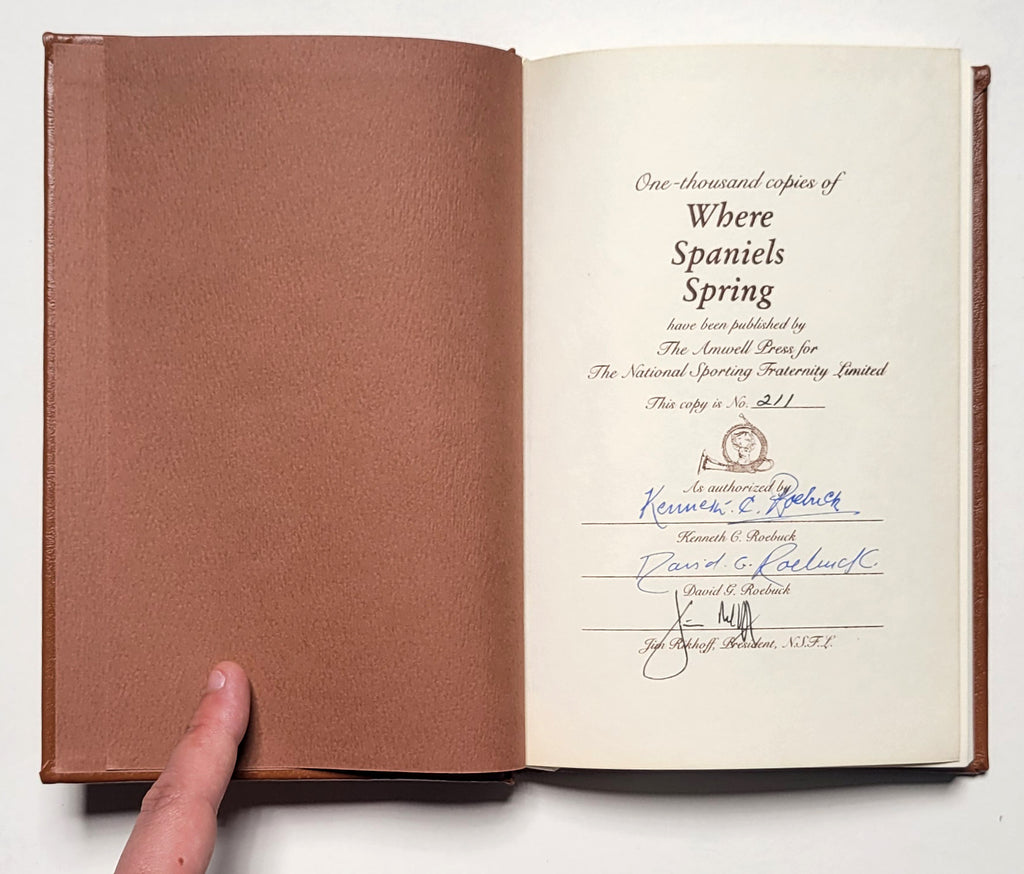 One-thousand copies of
Where
Spaniels
Spring
have been published by
The Amwell Press for
The National Sporting Fraternity Limited
This copy is No. 211
As authorized by
Kenneth C. Roebuck
Kenneth C. Roebuck
David G. Roebuck
David G. Roebuck
Jim Rikhoff
Jim Rikhoff, President, N.S.F.L.